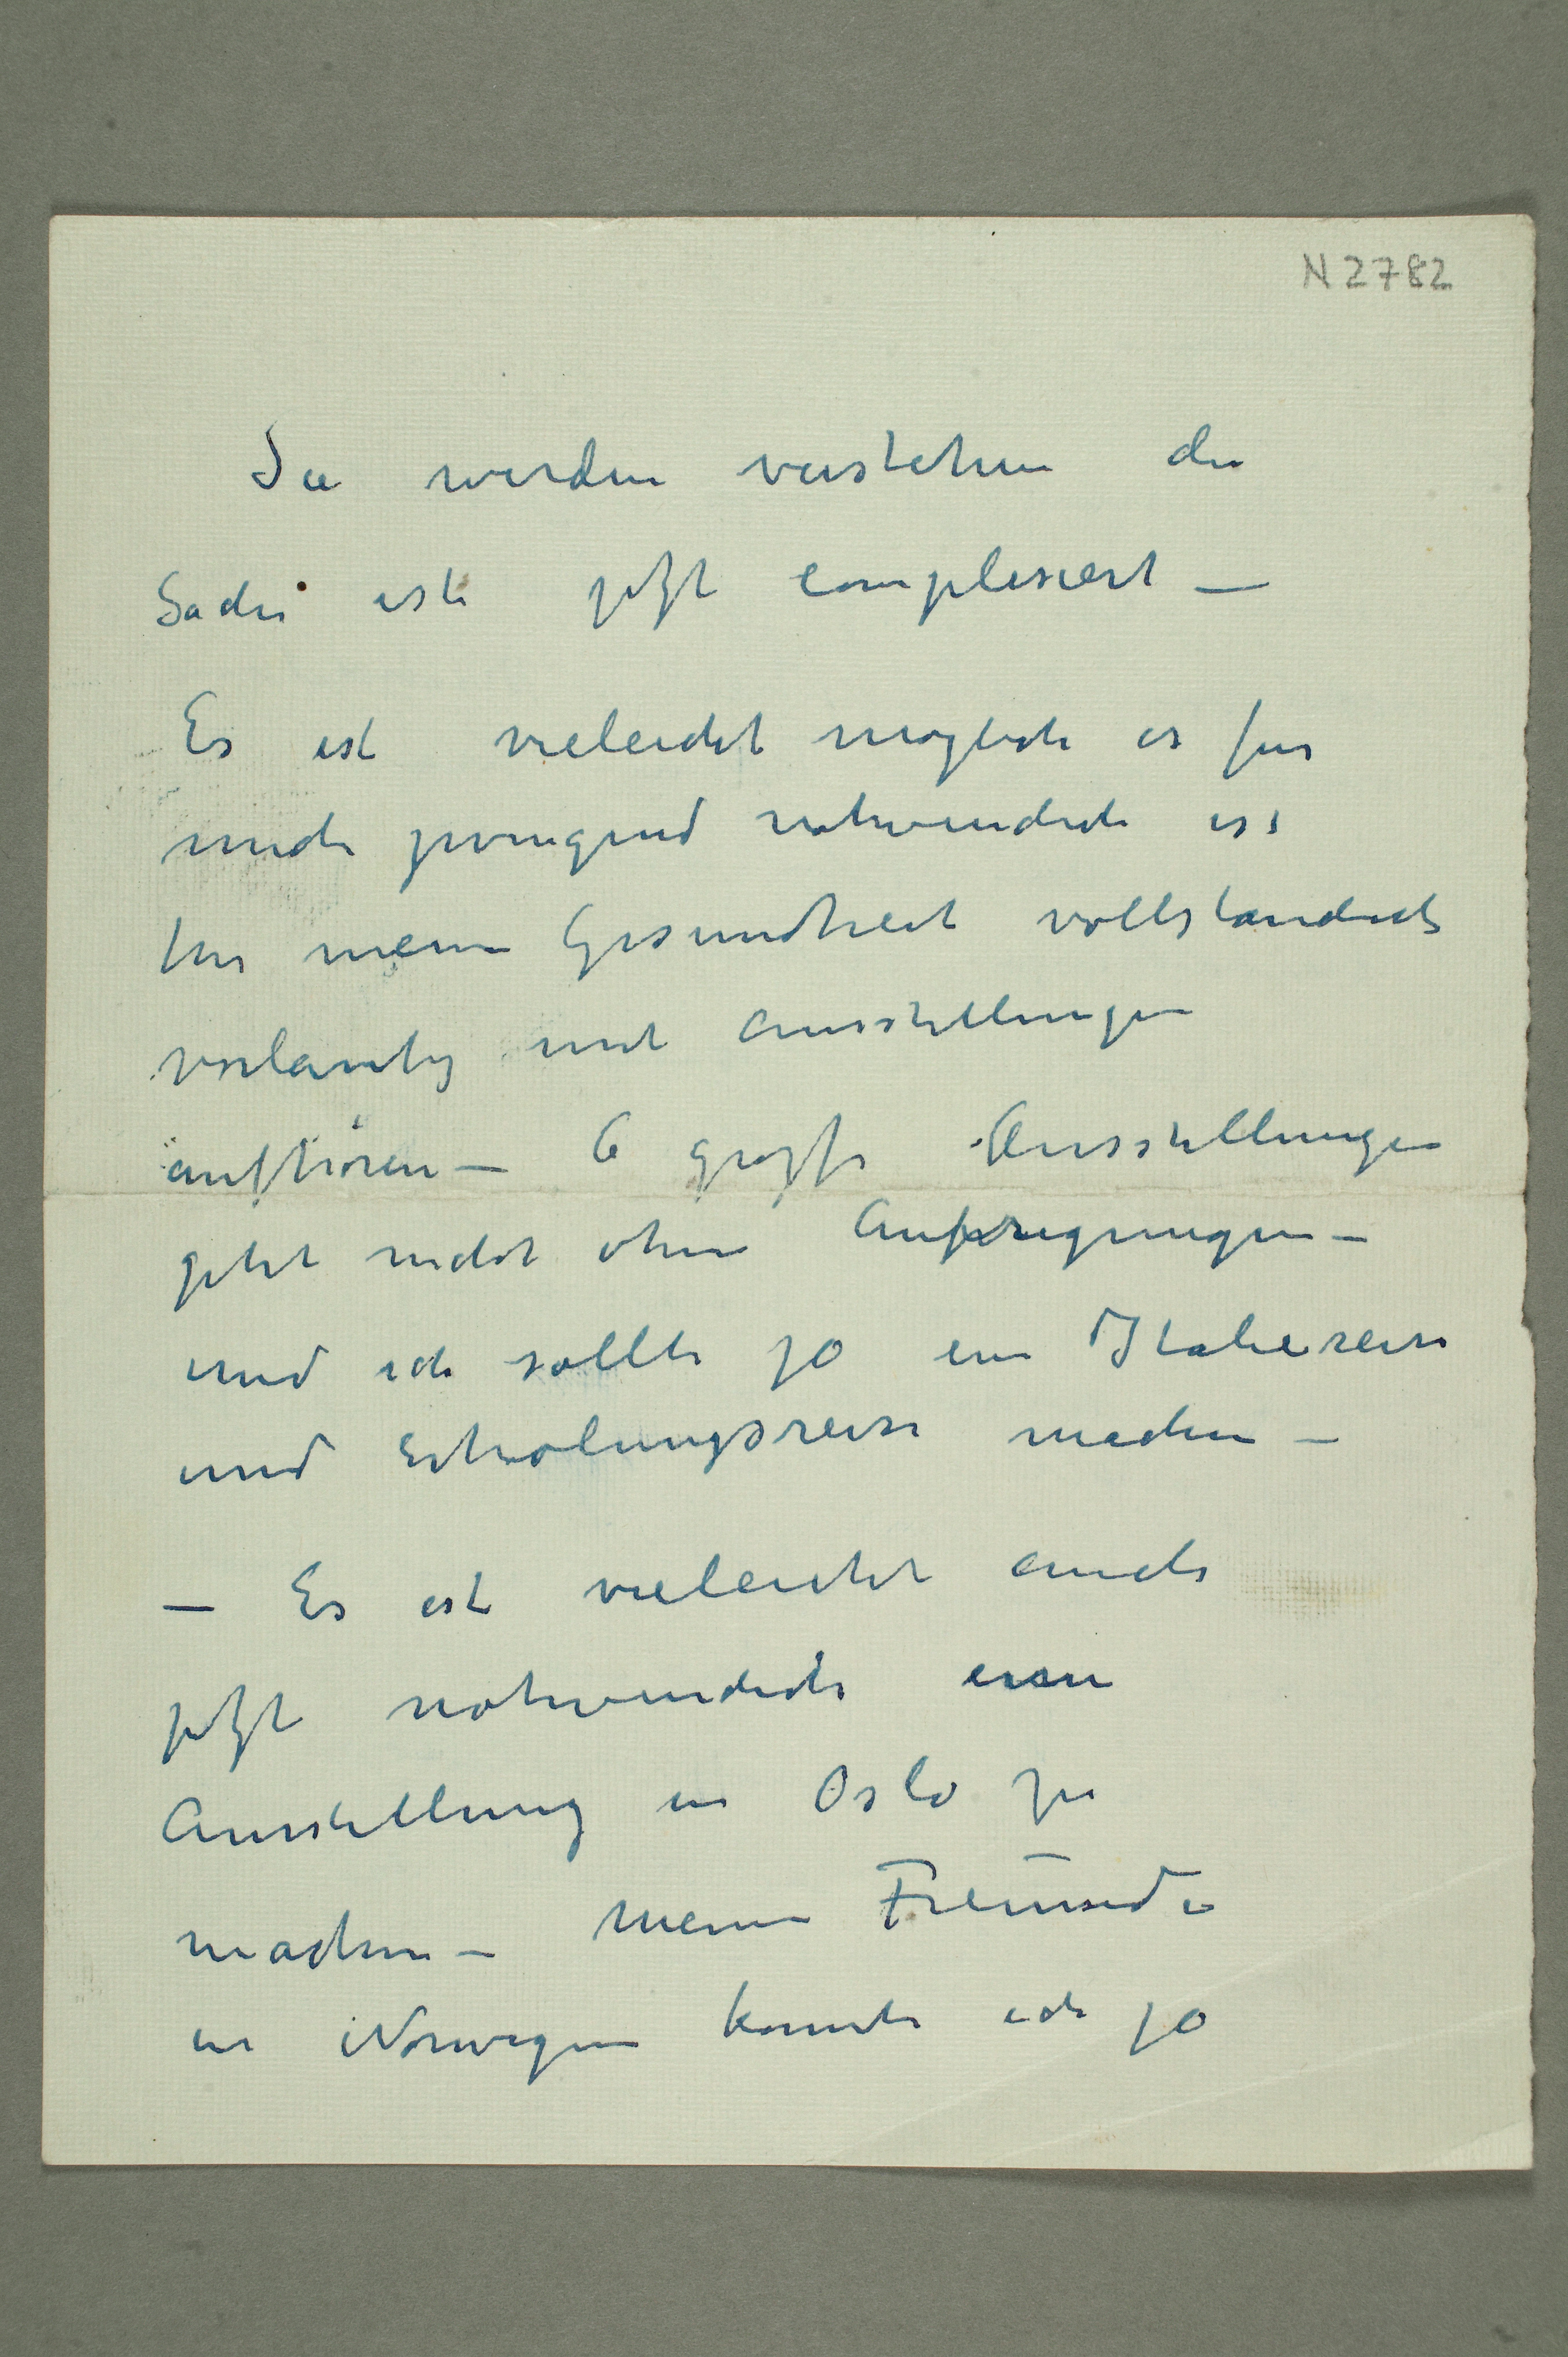 N 2782
Sie werden verstehen die
Sache ist jetzt complisiert –
Es ist vieleicht möglich es für
mich zwingend nothwendich ist
für meine Gesundheit vollstandich
vorlaufig mit Ausstellungen
aufhören – 6 grosse Ausstellungen
geht nicht ohne Aufregungen –
und ich sollte ja eine Italiereise
und Erholungsreise machen –
– Es ist vieleicht auch
jetzt nothwendich eine
Ausstellung in Oslo zu
machen – Meine Freunde
in Norwegen konnte ich ja